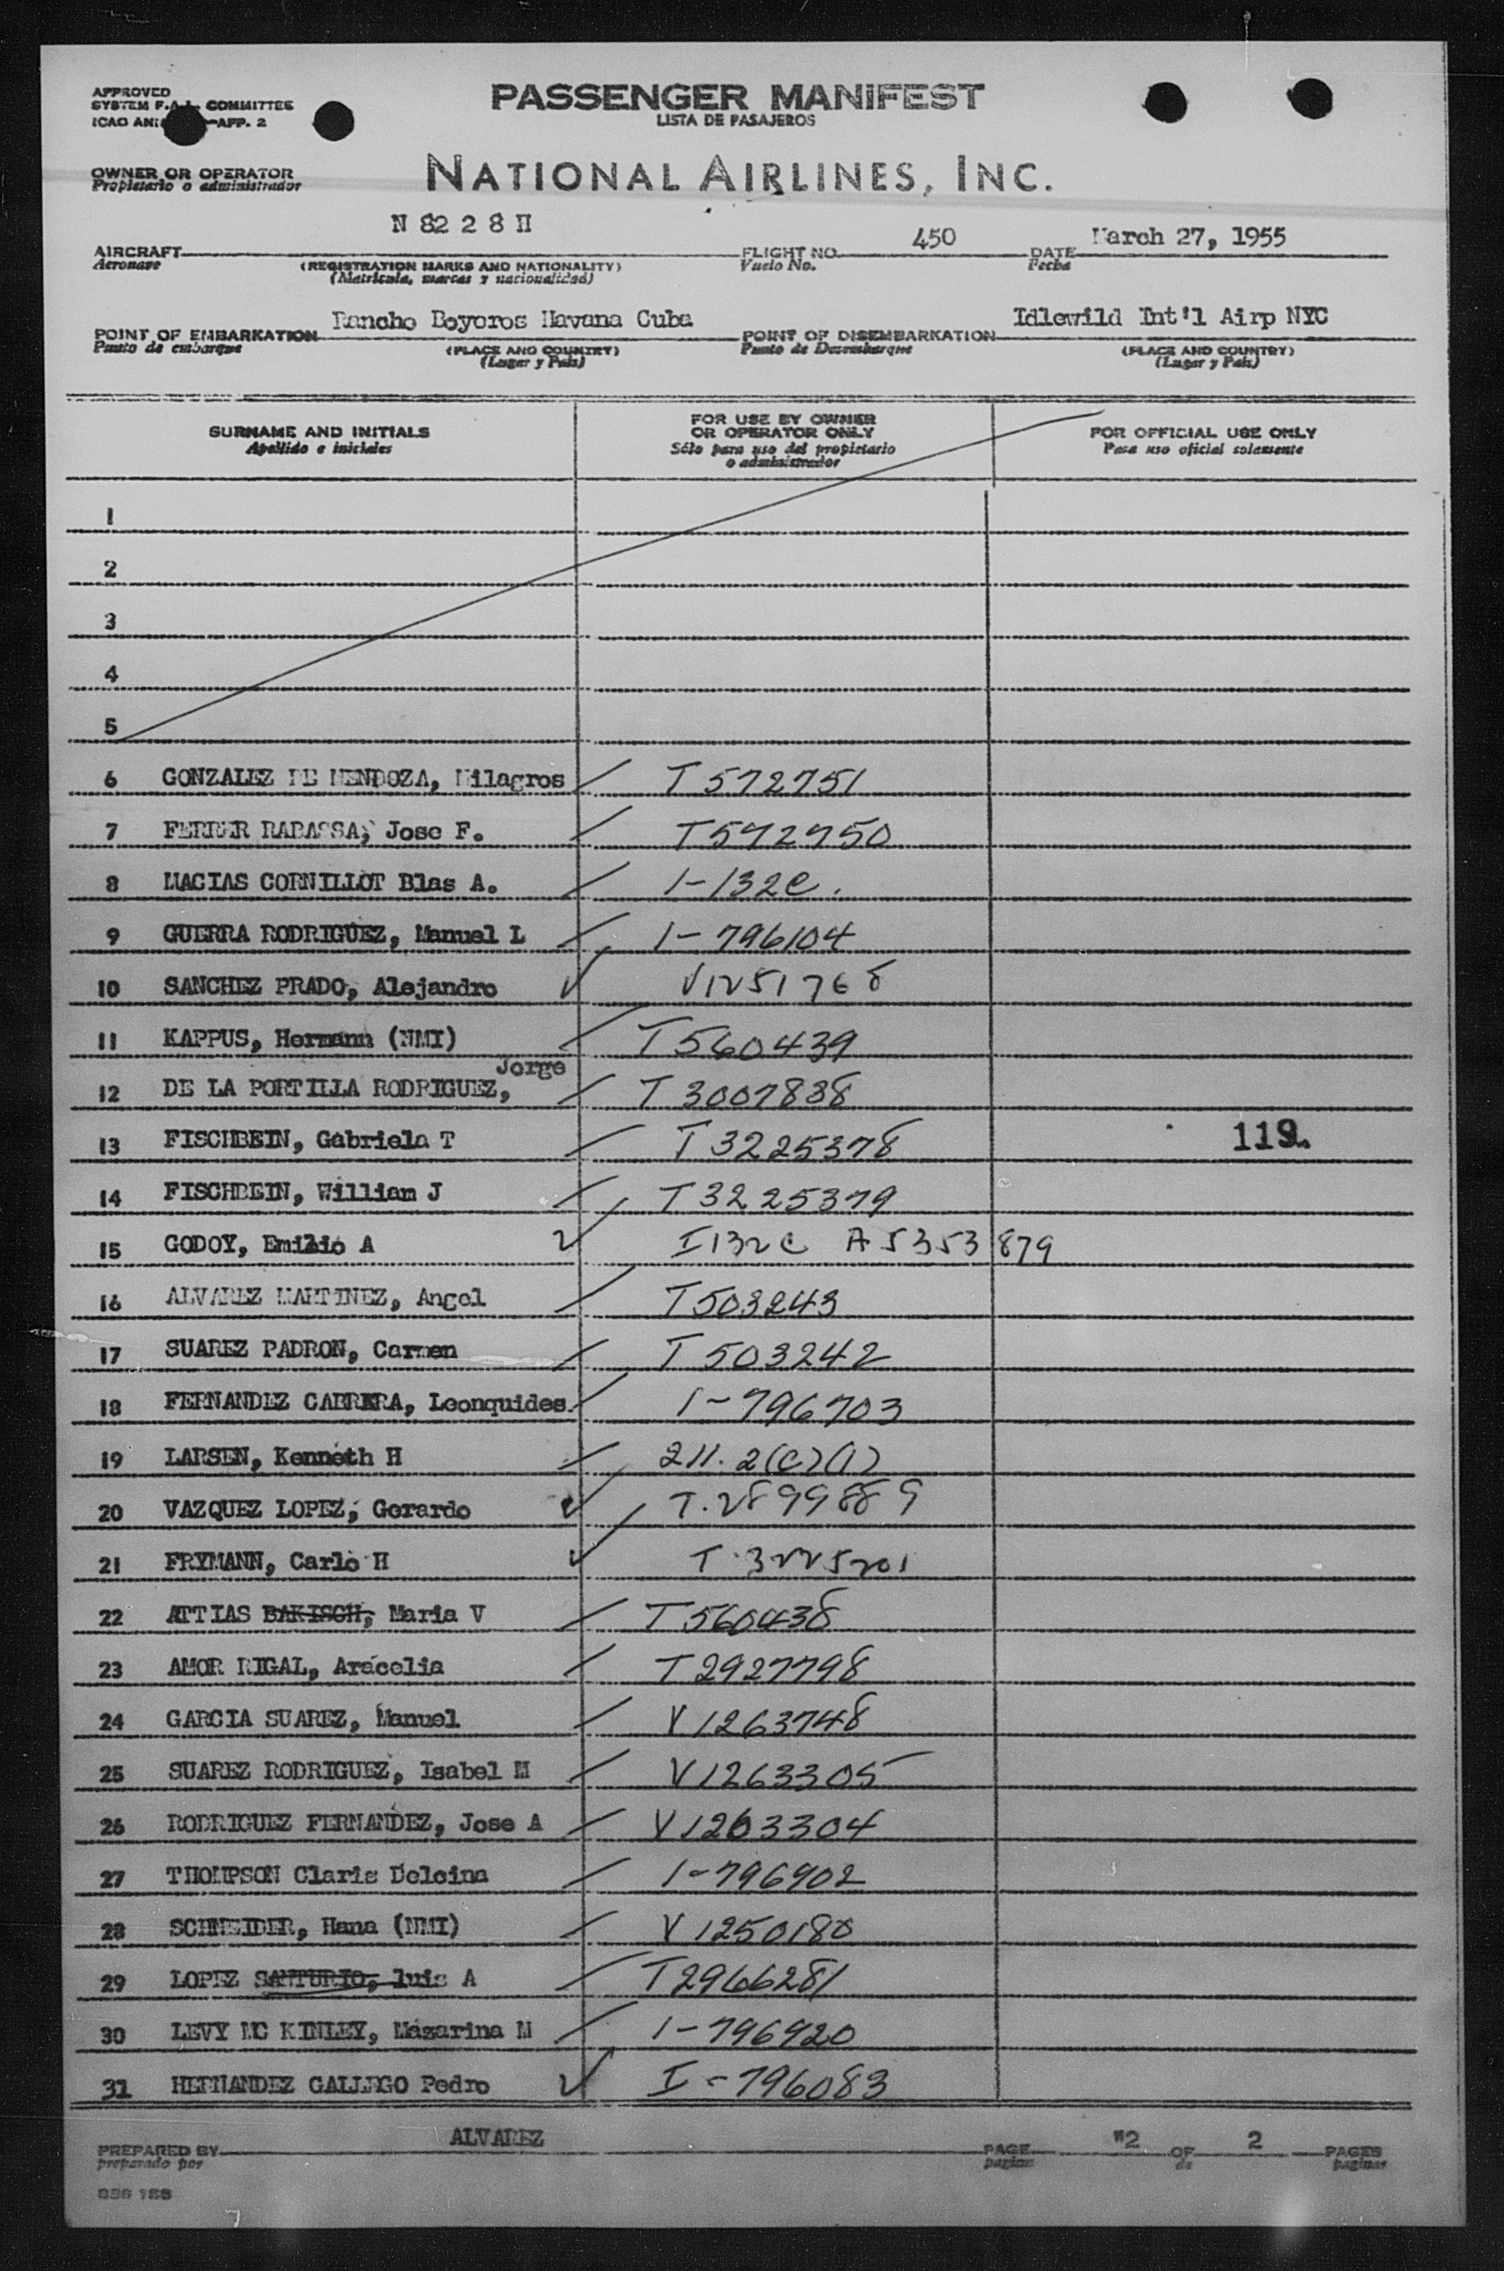 APPROVED
SYSTEM F.A.L. COMMITTEE
ICAO APP. 2
PASSENGER MANIFEST
LISTA DE PASAJEROS
OWNER OR OPERATOR
Propietario o administrador
NATIONAL AIRLINES, INC.
AIRCRAFT N 82 2 8 H FLIGHT NO. 450 DATE March 27, 1955
Aeronave (REGISTRATION MARKS AND NATIONALITY) Vuelo No. Fecha
(Matricula, marcas y nacionalidad)
POINT OF EMBARKATION Rancho Boyeros Havana Cuba POINT OF DISEMBARKATION Idlewild Int'l Airp NYC
Punto de embarque (PLACE AND COUNTRY) Punto de Desembarque (PLACE AND COUNTRY)
(Lugar y País) (Lugar y País)
SURNAME AND INITIALS
Apellido e iniciales
FOR USE BY OWNER
OR OPERATOR ONLY
Sólo para uso del propietario
o administrador
FOR OFFICIAL USE ONLY
Para uso oficial solamente
1
2
3
4
5
6 GONZALEZ DE MENDOZA, Milagros T 572751
7 FERRER RABASSA, Jose F. T572750
8 MACIAS CORNILLOT Blas A. 1-132C.
9 GUERRA RODRIGUEZ, Manuel L 1-796104
10 SANCHEZ PRADO, Alejandro V1251768
11 KAPPUS, Hermann (NMI) T560439
Jorge
12 DE LA PORTILLA RODRIGUEZ, T 3007838
13 FISCHBEIN, Gabriela T T 3225378 119.
14 FISCHBEIN, William J T 3225379
15 GODOY, Emilio A I132C A5353879
16 ALVAREZ MARTINEZ, Angel T503243
17 SUAREZ PADRON, Carmen T 503242
18 FERNANDEZ CABRERA, Leonquides 1-796703
19 LARSEN, Kenneth H 211.2(C)(1)
20 VAZQUEZ LOPEZ, Gerardo T.2899889
21 FRYMANN, Carlo H T.3225201
22 ATTIAS BAKISCH, Maria V T560438
23 AMOR RIGAL, Aracelia T2927798
24 GARCIA SUAREZ, Manuel V1263748
25 SUAREZ RODRIGUEZ, Isabel M V1263305
26 RODRIGUEZ FERNANDEZ, Jose A V1263304
27 THOMPSON Claris Delcina 1-796902
28 SCHNEIDER, Hana (NMI) V 1250180
29 LOPEZ SANTURIO, luis A T2966281
30 LEVY MC KINLEY, Mazarina M 1-796920
31 HERNANDEZ GALLEGO Pedro I-796083
PREPARED BY ALVAREZ PAGE "2 OF 2 PAGES
preparado por pagina de paginas